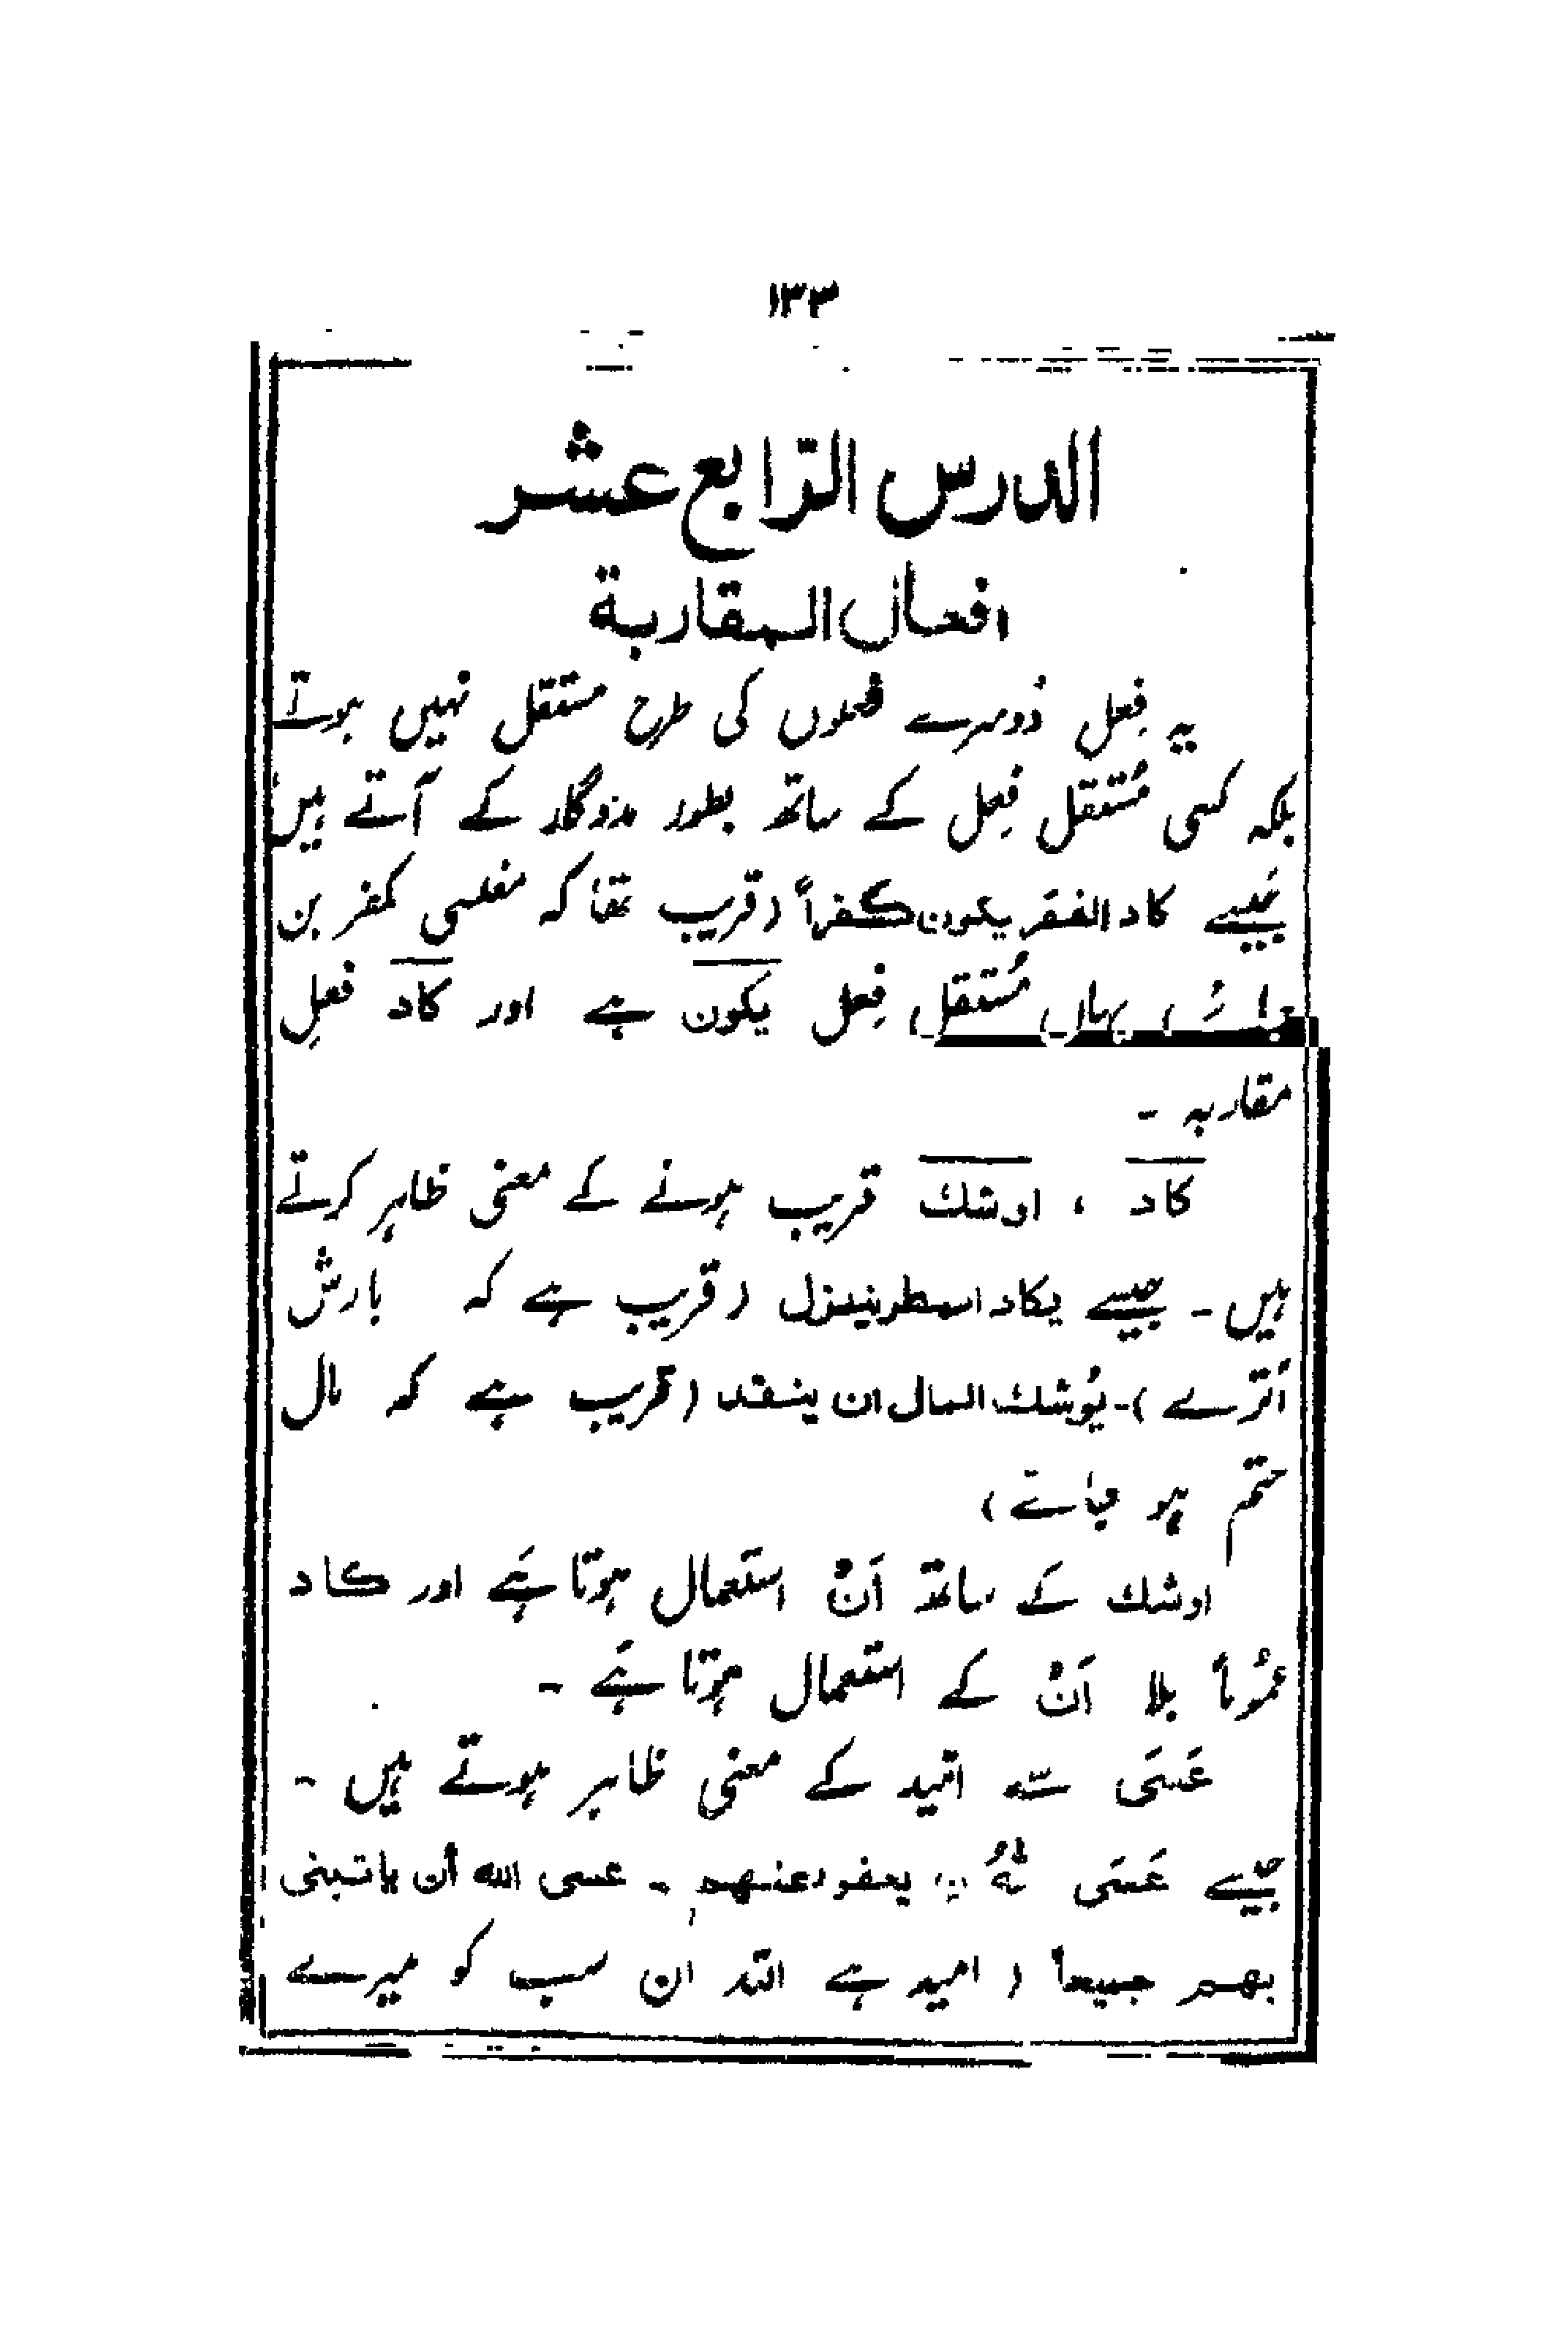 ۱۳۳
الدرس الرّابع عشر
افعال المقاربة
یہ فِعل دُوسرے فعلوں کی طرح مستقل نہیں ہوتے
بلکہ کسی مُستقل فِعل کے ساتھ بطور مددگار کے آتے ہیں
جَیسے کاد الفقر یکون کفراً (قریب تھا کہ مفلسی کفر بن
جائے) یہاں مُستقل فِعل یکون ہے اور کاد فعلِ
مقاربہ ـ
کاد ، اوشك قریب ہونے کے معنی ظاہر کرتے
ہیں ـ جیسے یکاد المطر ینزل (قریب ہے کہ بارش
اُترے) ـ یُوشك المال ان ینفد (قریب ہے کہ مال
ختم ہو جائے)
اوشك کے ساتھ اَنْ استعمال ہوتا ہَے اور کاد
عمُوماً بلا اَنْ کے استعمال ہوتا ہَے ـ
عَسَی سے امّید کے معنی ظاہر ہوتے ہیں ـ
جیسے عَسَی یعفو عنهم ـ عسی الله أن یاتینی
بهم جمیعاً (امید ہے اللہ ان سب کو میرے